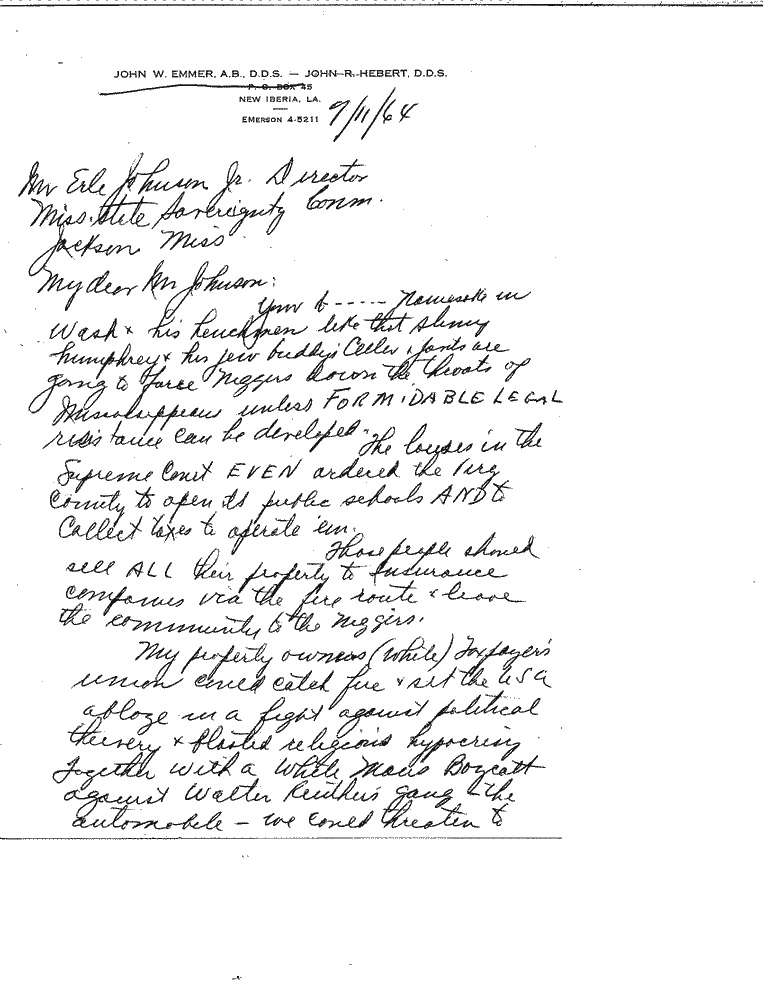 JOHN W. EMMER, A.B., D.D.S. — JOHN R. HEBERT, D.D.S.
P. O. BOX 45
NEW IBERIA, LA.
EMERSON 4-5211
9/11/64
Mr Erle Johnson Jr. Director
Miss. State Sovereignty Comm.
Jackson Miss
My dear Mr Johnson:
Your b----- namesake in
Wash & his henchmen like that slimy
Humphrey & his jew buddys Celler & Javits are
going to force niggers down the throats of
Mississippeans unless FORMIDABLE LEGAL
resistance can be developed. The louses in the
Supreme Court EVEN ordered the Virg
County to open its public schools AND to
Collect taxes to operate 'em.
Those people should
sell ALL their property to Insurance
companies via the fire route & leave
the community to the niggers.
My property owners (white) Taxpayer's
union could catch fire & set the USA
ablaze in a fight against political
thievery & bloated religious hypocrisy
Together with a White Mans Boycott
against Walter Reuther's gang & the
automobile — we could threaten to